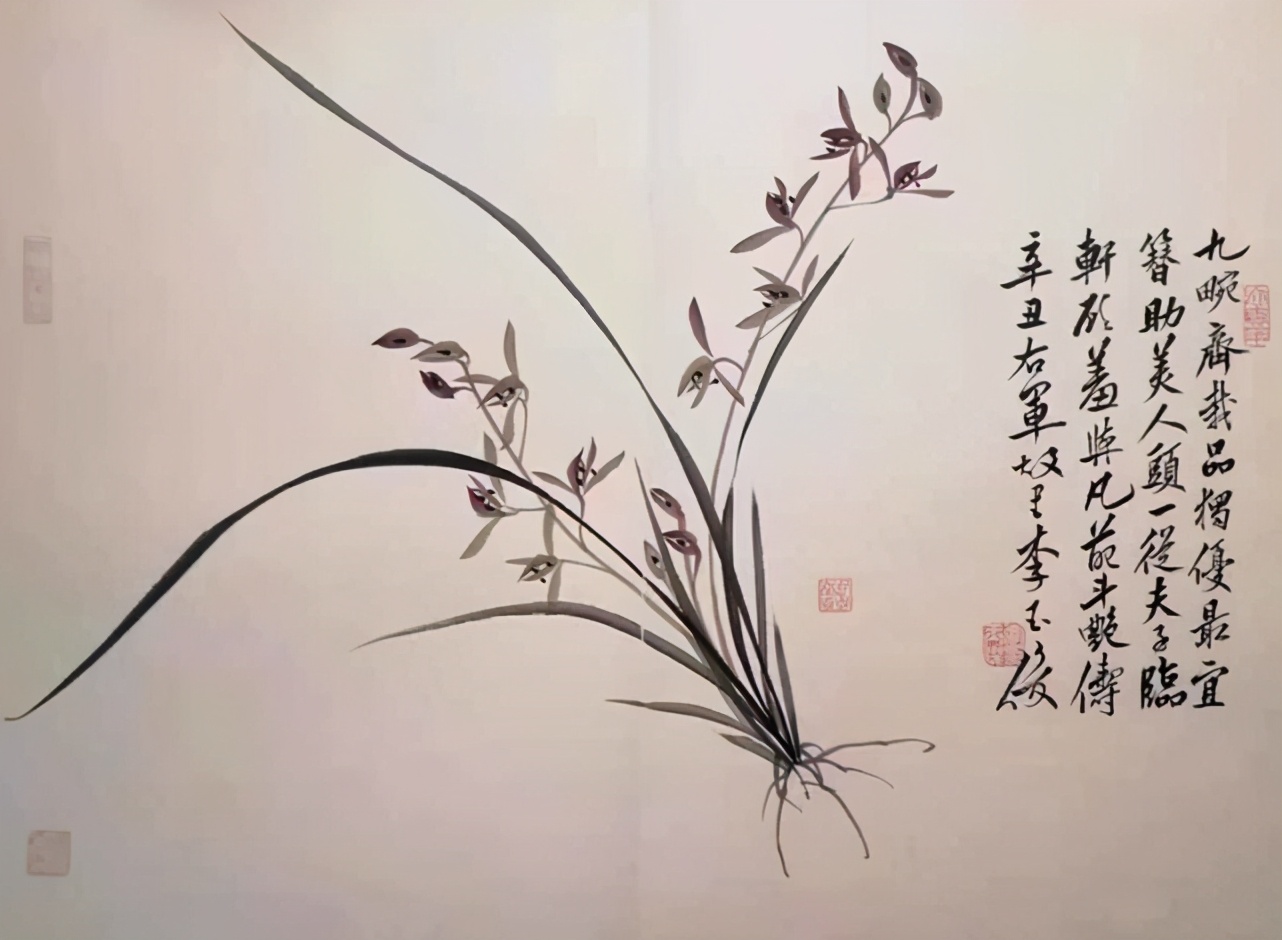 九畹齊栽品獨優最宜
簪助美人頭一從夫子臨
軒顧羞與凡葩斗艷儔
辛丑右軍故里李玉俊